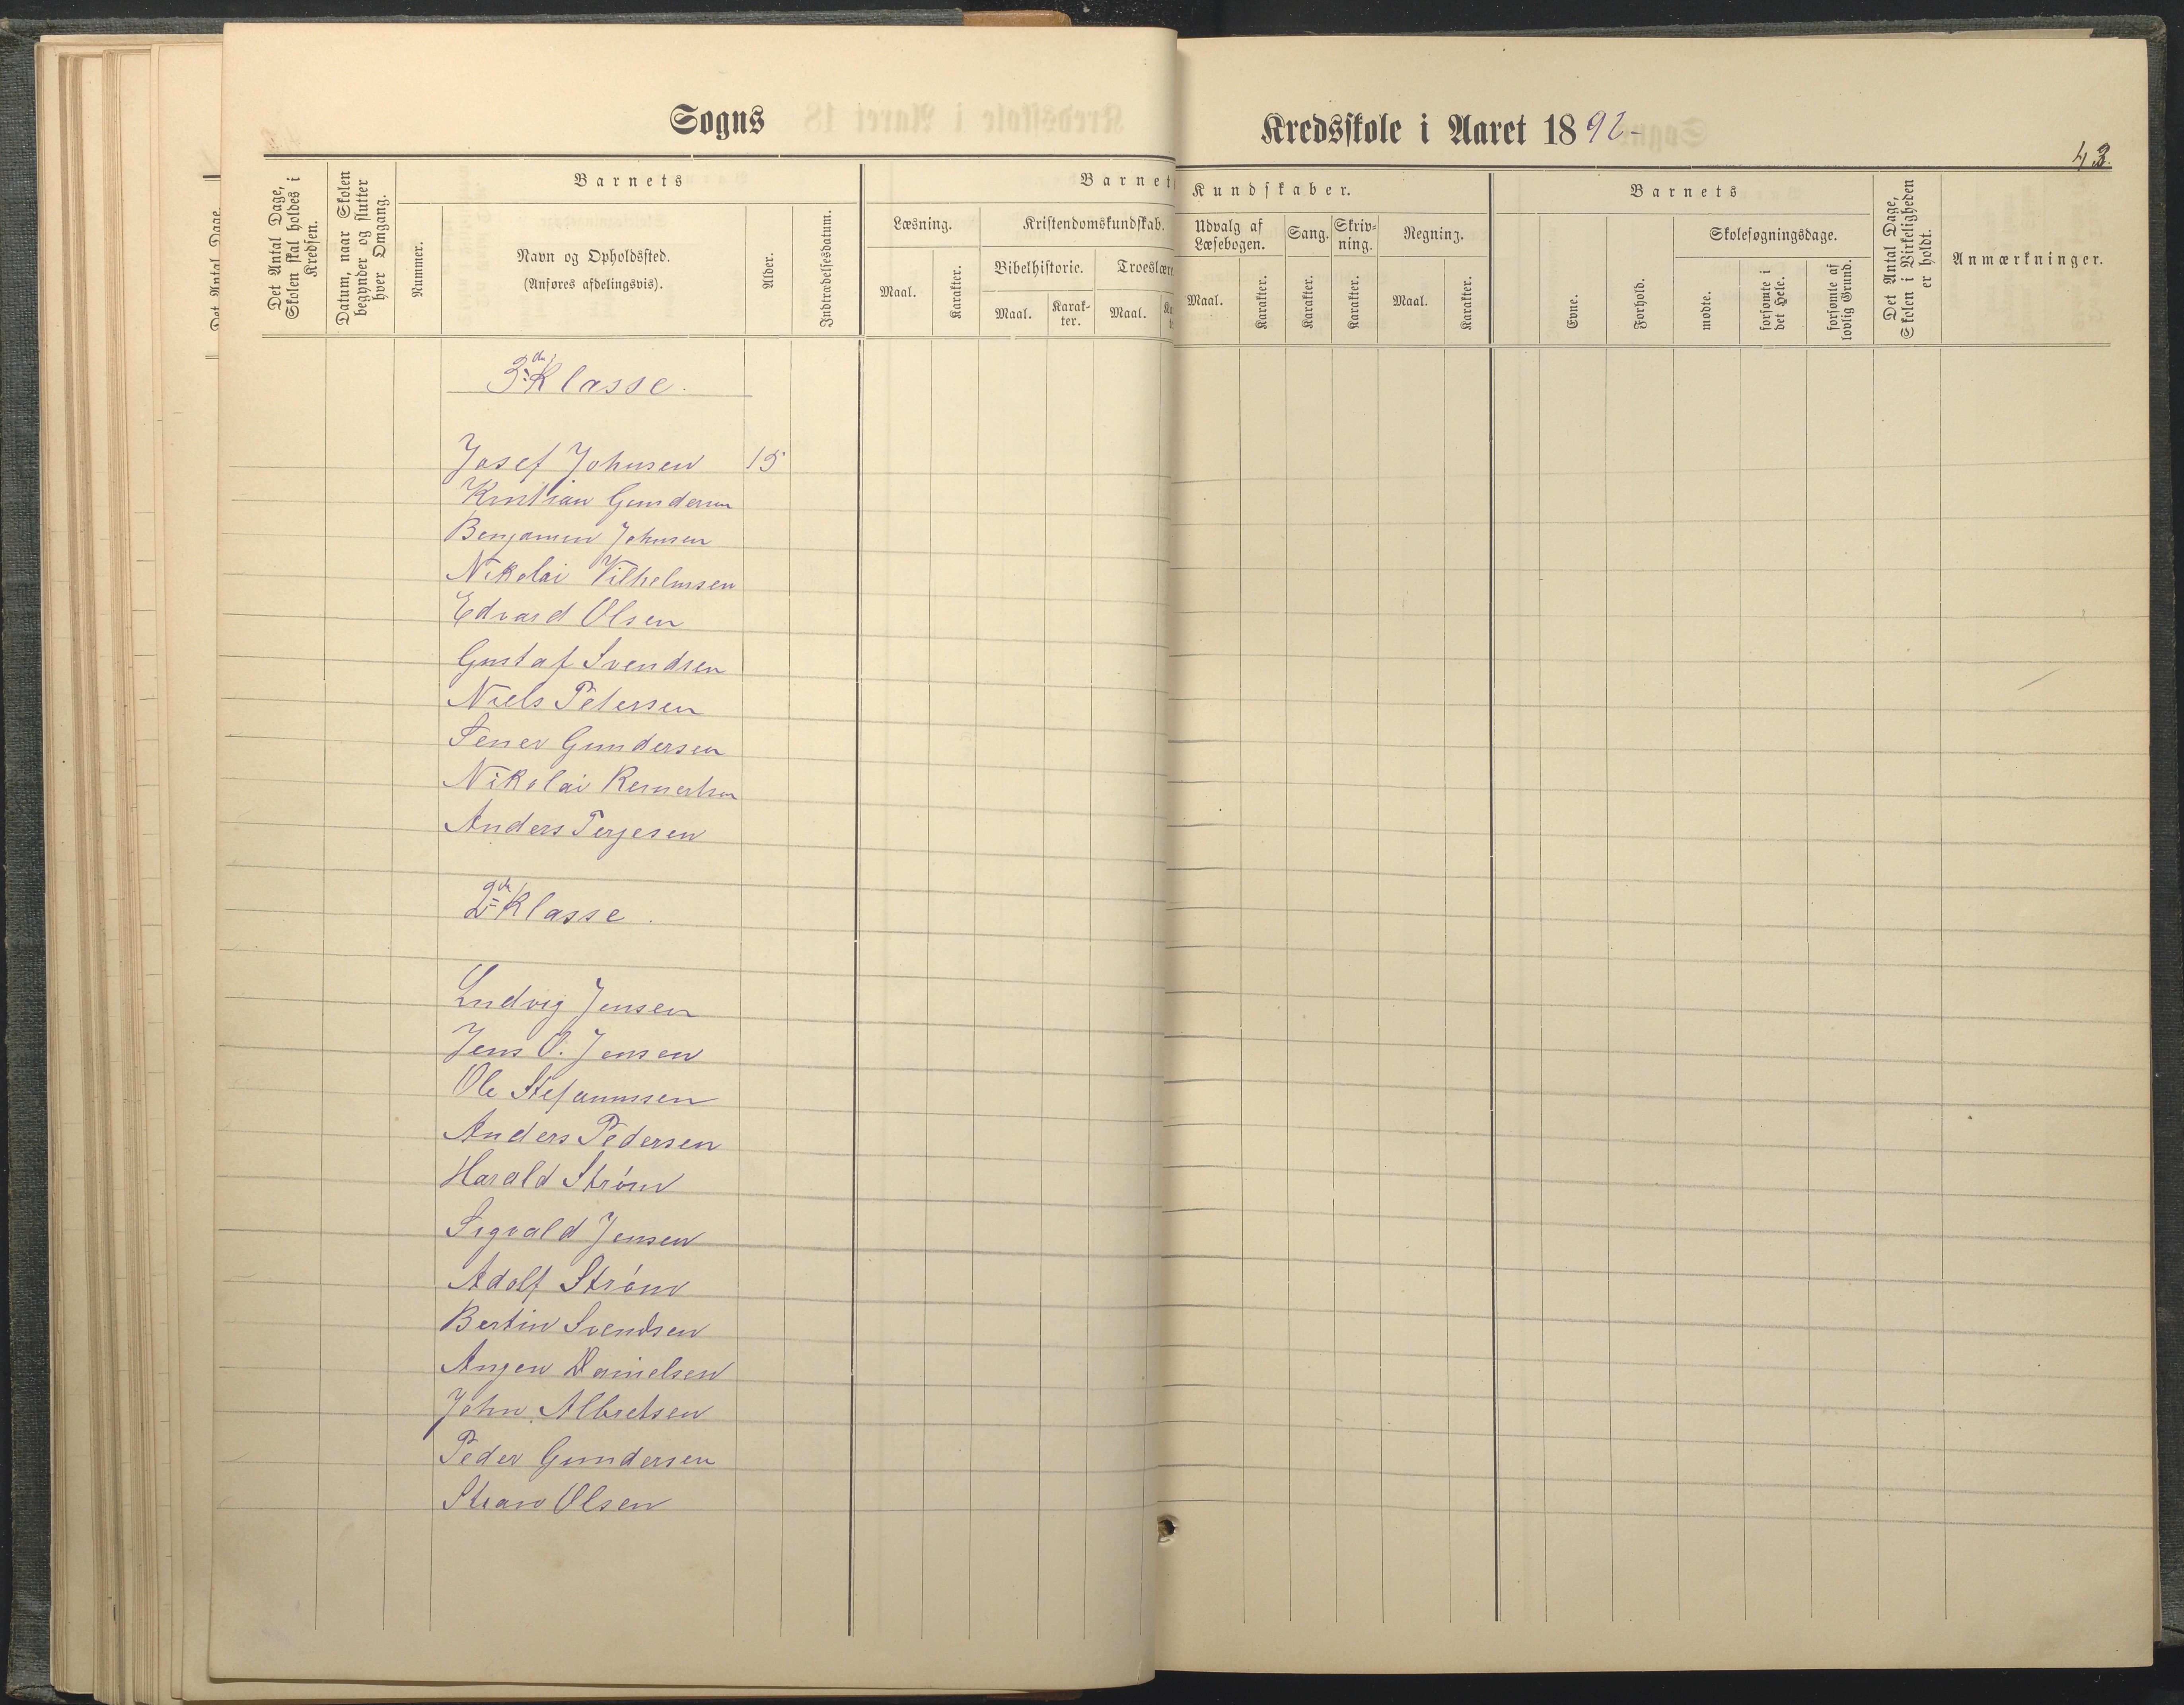 Sogns
Kredsskole i Aaret 1892-
43.
Det Antal Dage, Skolen skal holdes i Kredsen.
Datum, naar Skolen begynder og slutter hver Omgang.
Barnets
Nummer.
Navn og Opholdssted.
(Anføres afdelingsvis).
Alder.
Indtrædelsesdatum.
Barnets
Læsning.
Maal.
Karakter.
Kristendomskundskab.
Bibelhistorie.
Maal.
Karak-
ter.
Troeslære
Maal.
Kundskaber.
Udvalg af
Læsebogen.
Maal.
Karakter.
Sang.
Karakter.
Skriv-
ning.
Karakter.
Regning.
Maal.
Karakter.
Barnets
Evne.
Forhold.
Skolesøgningsdage.
mødte.
forsømte i det Hele.
forsømte af lovlig Grund.
Det Antal Dage, Skolen i Virkeligheden er holdt.
Anmærkninger.
Det Antal Dage.
3die Klasse.
Josef Johnsen 15
Kristian Gundersen
Benjamin Johnsen
Nikolai Vilhelmsen
Edvard Olsen
Gustaf Svendsen
Niels Petersen
Gundersen
Nikolai
Anders Terjesen
2den Klasse.
Ludvig Jensen
Jens O. Jensen
Ole Stefanussen
Anders Pedersen
Harald Strøm
Sigvald Jensen
Adolf Strøm
Bertin Svendsen
Anjen Danielsen
John Albretsen
Peder Gundersen
Olsen